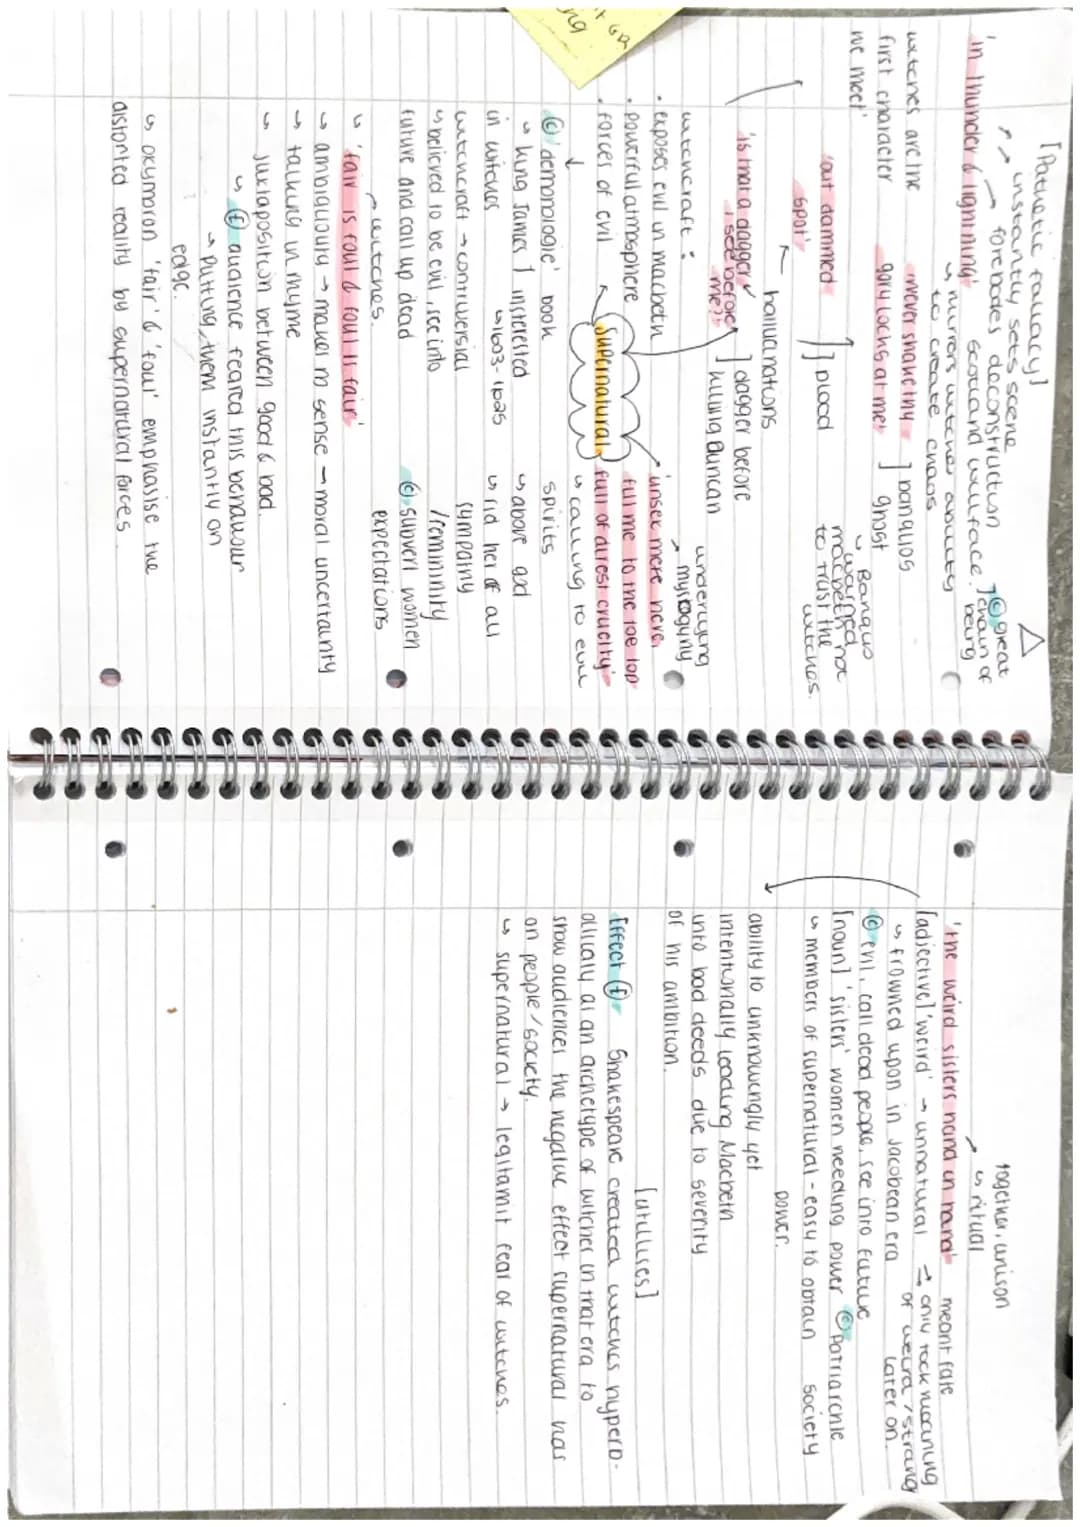 [Pathetic fallacy]
↳ instantly sets scene
'in thunder & lightning'
→ forebodes deconstruction
Scotland welfare.
] © great
chain of
being
↳ mirrors witches ability
to create chaos
witches are the
first character
we meet'
'never shake thy
gory locks at me'
] banquos
ghost
↳ Banquo
warned
macbeth not
to trust the
witches.
'out damned
spot'
] blood
hallucinations
'is that a dagger
I see before
me?'
] dagger before
killing Duncan
witchcraft :
• exposes evil in macbeth
• powerful atmosphere
• forces of evil
Supernatural
underlying
→ mysogyny
'unsex me here'
'fill me to the toe top
full of direst cruelty'
↳ calling to evil
spirits
↳ above god
↳ rid her of all
sympathy
/feminity
© subvert women
expectations
© 'demonologie' book
↳ King James I insterested
in witches
↳ 1603-1625
witchcraft → controversial
↳ believed to be evil, see into
future and call up dead
→ witches.
↳ 'fair is foul & foul is fair'
↳ ambiguoity → makes no sense → moral uncertainty
↳ talking in rhyme
↳ juxtaposition between good & bad.
↳ Ⓔ audience feared this behaviour
↳ putting them instantly on
edge.
↳ oxymoron 'fair' & 'foul' emphasise the
distorted reality by supernatural forces.
together, unison
↳ ritual
'the weird sisters hand in hand'
[adjective] 'weird' → unnatural
meant fate
→ only took meaning
of weird / strang
later on.
↳ frowned upon in Jacobean era
© evil, call dead people, see into future
[noun] 'sisters' women needing power © Patriarchle
society
↳ members of supernatural - easy to obtain
power.
ability to unknowingly yet
intentionally leading Macbeth
into bad deeds due to severity
of his ambition.
[utillises]
Effect Ⓔ Shakespeare created witches hyperb-
ollicaly as an archetype of witches in that era to
show audiences the negative effect supernatural has
on people / society.
↳ supernatural → legitamit fear of witches.